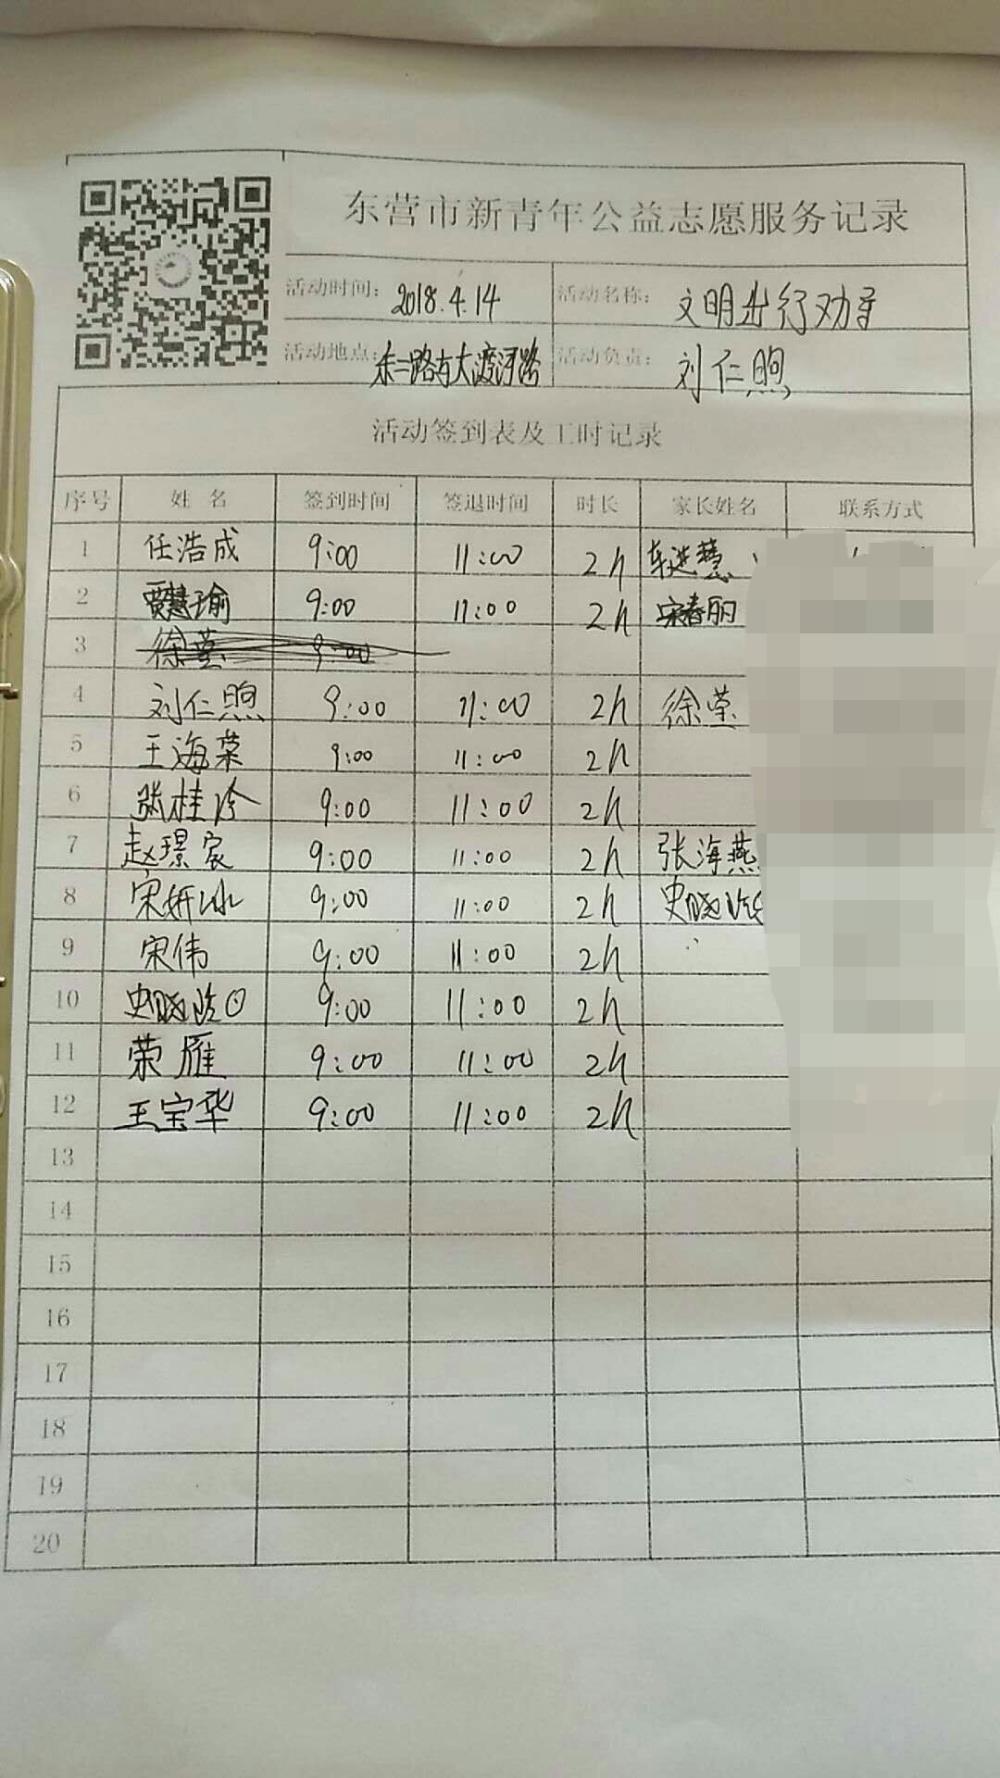 东营市新青年公益志愿服务记录
活动时间： 2018.4.14 活动名称： 文明出行劝导
活动地点： 东二路与大渡河路 活动负责： 刘仁煦
活动签到表及工时记录
序号 姓 名 签到时间 签退时间 时长 家长姓名 联系方式
1 任浩成 9:00 11:00 2h 车进慧
2 贾慧瑜 9:00 11:00 2h 宋春丽
3 徐莹 9:00
4 刘仁煦 9:00 11:00 2h 徐莹
5 王海荣 9:00 11:00 2h
6 张桂玲 9:00 11:00 2h
7 赵璟宸 9:00 11:00 2h 张海燕
8 宋妍冰 9:00 11:00 2h
9 宋伟 9:00 11:00 2h
10 9:00 11:00 2h
11 荣雁 9:00 11:00 2h
12 王宝华 9:00 11:00 2h
13
14
15
16
17
18
19
20